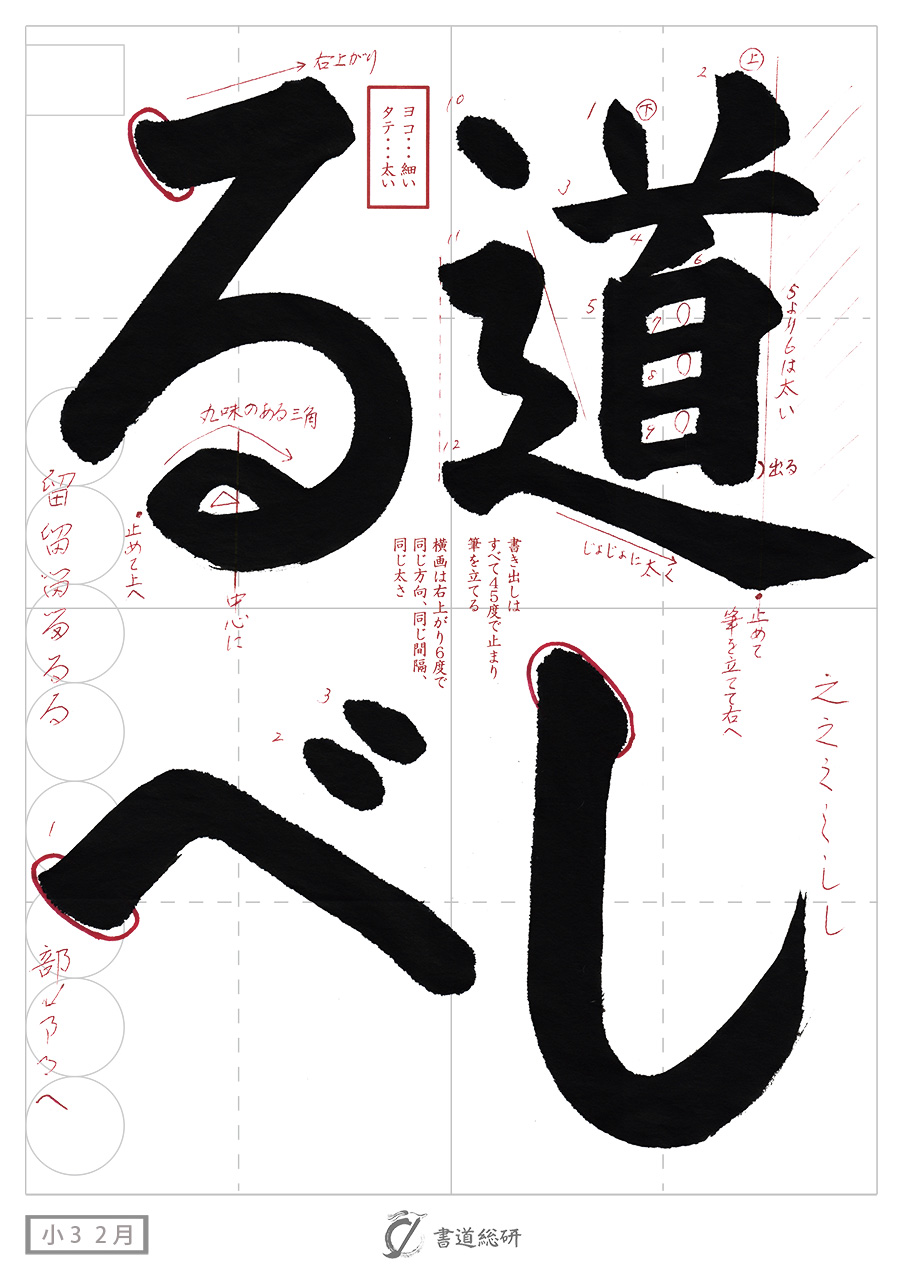 道し
るべ
右上がり
ヨコ・・・細い
タテ・・・太い
10
11
12
1
下
2
上
3
4
5
6
7
8
9
5より6は太い
出る
じょじょに太く
止めて
筆を立てて右へ
書き出しは
すべて45度で止まり
筆を立てる
横画は右上がり6度で
同じ方向、同じ間隔、
同じ太さ
丸味のある三角
止めて上へ
中心に
留留留る る
部
へ
1
2
3
之之し
小3 2月
書道総研